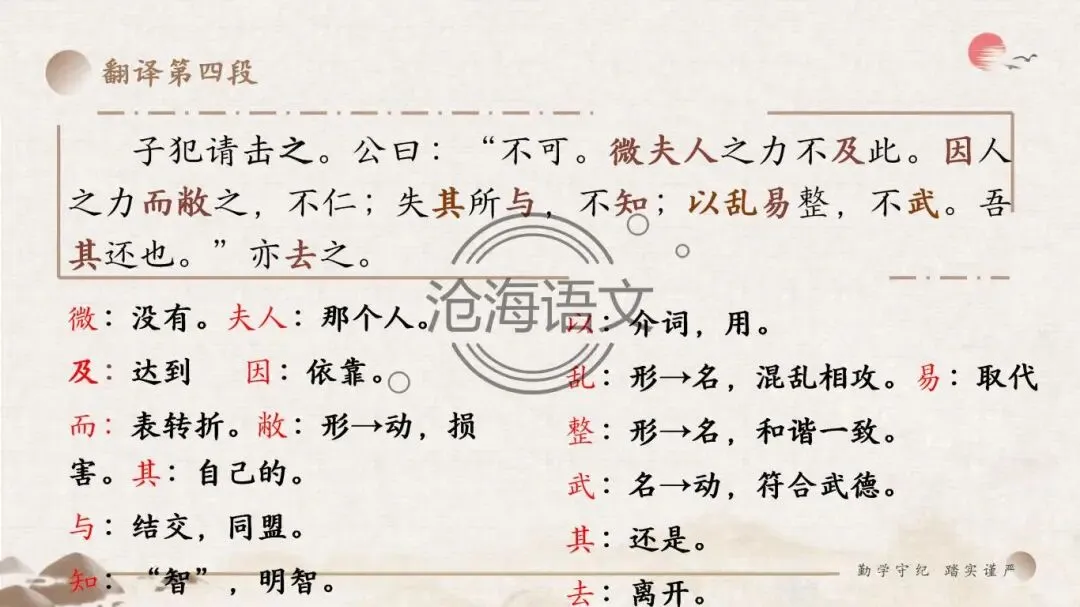 翻译第四段
子犯请击之。公曰：“不可。微夫人之力不及此。因人
之力而敝之，不仁；失其所与，不知；以乱易整，不武。吾
其还也。”亦去之。
沧海语文
微：没有。夫人：那个人。
及：达到 因：依靠。
而：表转折。敝：形→动，损
害。其：自己的。
与：结交，同盟。
知：“智”，明智。
以：介词，用。
乱：形→名，混乱相攻。易：取代
整：形→名，和谐一致。
武：名→动，符合武德。
其：还是。
去：离开。
勤学守纪 踏实谨严